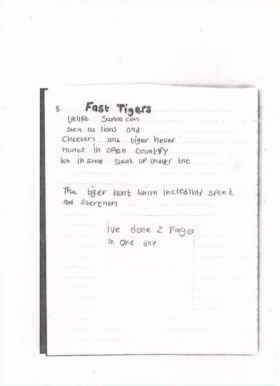 5 Fast Tigers
Unlike Some cats
such as lions and
Cheetahs the tiger Never
Hunts in open Country
but in some
The tiger hunt with incredible speed
and
Ive done 2 Pages
in one day